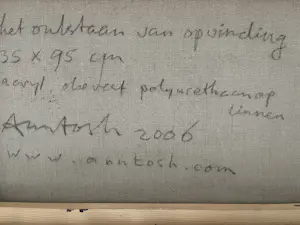 het ontstaan van opwinding
35 x 95 cm
acryl, olieverf polyurethaan op
linnen
Anntosh 2006
www.anntosh.com